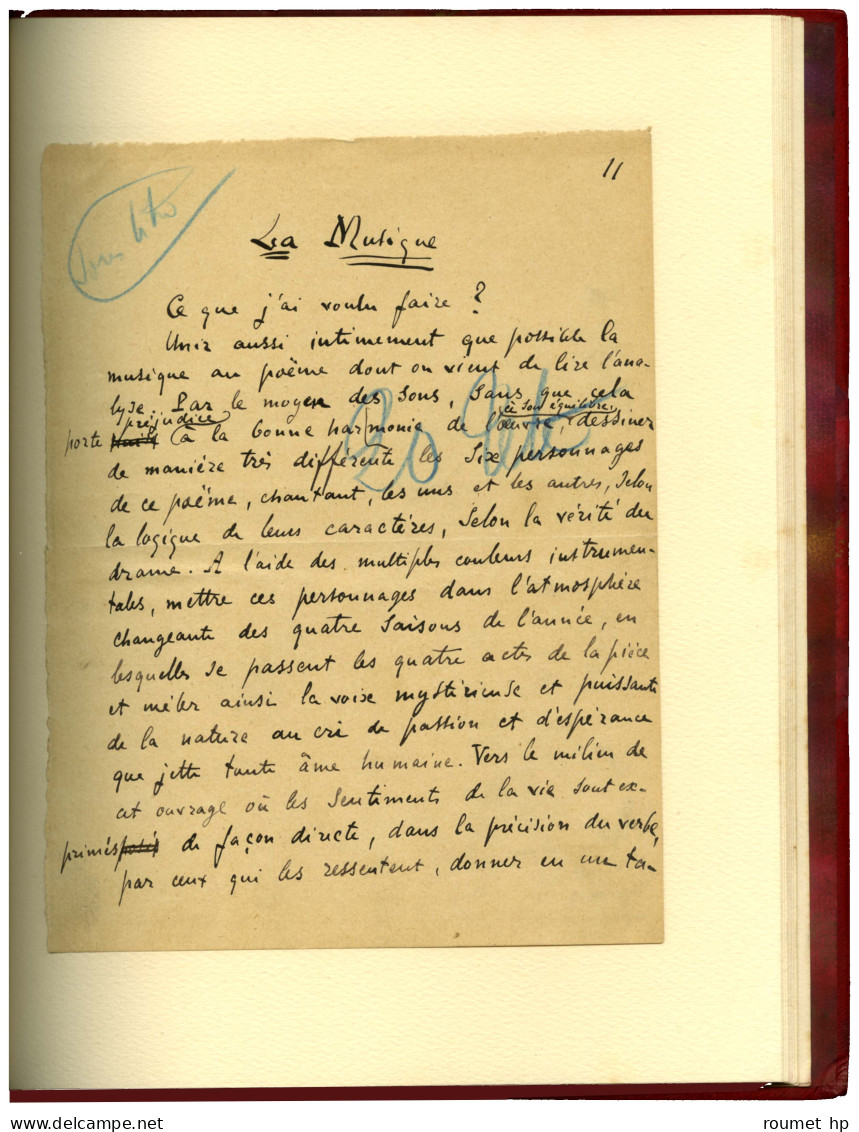 11
La Musique
Ce que j'ai voulu faire ?
Unir aussi intimement que possible la
musique au poëme dont on vient de lire l'ana-
lyse. Par le moyen des sons, sans que cela
porte préjudice à la bonne harmonie de l'œuvre, à son équilibre, dessiner
de manière très différente les six personnages
de ce poëme, chantant, les uns et les autres, selon
la logique de leurs caractères, selon la vérité du
drame. A l'aide des multiples couleurs instrumen-
tales, mettre ces personnages dans l'atmosphère
changeante des quatre saisons de l'année, en
lesquelles se passent les quatre actes de la pièce
et mêler ainsi la voix mystérieuse et puissante
de la nature au cri de passion et d'espérance
que jette toute âme humaine. Vers le milieu de
cet ouvrage où les sentiments de la vie sont ex-
primés de façon directe, dans la précision du verbe,
par ceux qui les ressentent, donner en un ta-
www.delcampe.net
roumet hp